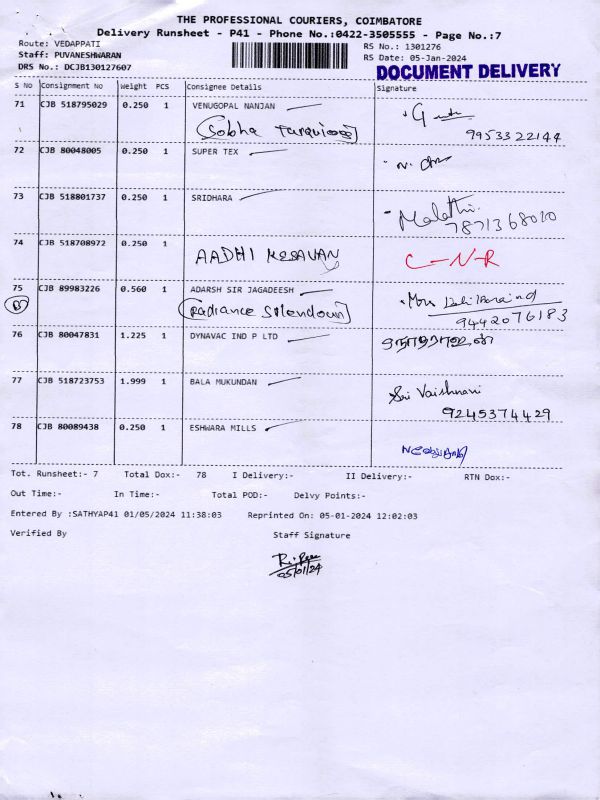 THE PROFESSIONAL COURIERS, COIMBATORE
Delivery Runsheet - P41 - Phone No.:0422-3505555 - Page No.:7
Route: VEDAPPATI
RS No.: 1301276
Staff: PUVANESHWARAN
RS Date: 05-Jan-2024
DRS No.: DCJB130127607
DOCUMENT DELIVERY
S No Consignment No Weight PCS Consignee Details Signature
71 CJB 518795029 0.250 1 VENUGOPAL NANJAN
Sobha 9953322144
72 CJB 80048005 0.250 1 SUPER TEX
73 CJB 518801737 0.250 1 SRIDHARA Malathi
7871368010
74 CJB 518708972 0.250 1
AADHI KESAVAN C-N-R
75 CJB 89983226 0.560 1 ADARSH SIR JAGADEESH
Radiance Splendour 9442076183
76 CJB 80047831 1.225 1 DYNAVAC IND P LTD
77 CJB 518723753 1.999 1 BALA MUKUNDAN Sri Vaishnavi
9245374429
78 CJB 80089438 0.250 1 ESHWARA MILLS
Tot. Runsheet:- 7 Total Dox:- 78 I Delivery:- II Delivery:- RTN Dox:-
Out Time:- In Time:- Total POD:- Delvy Points:-
Entered By :SATHYAP41 01/05/2024 11:38:03 Reprinted On: 05-01-2024 12:02:03
Verified By Staff Signature
05/01/24